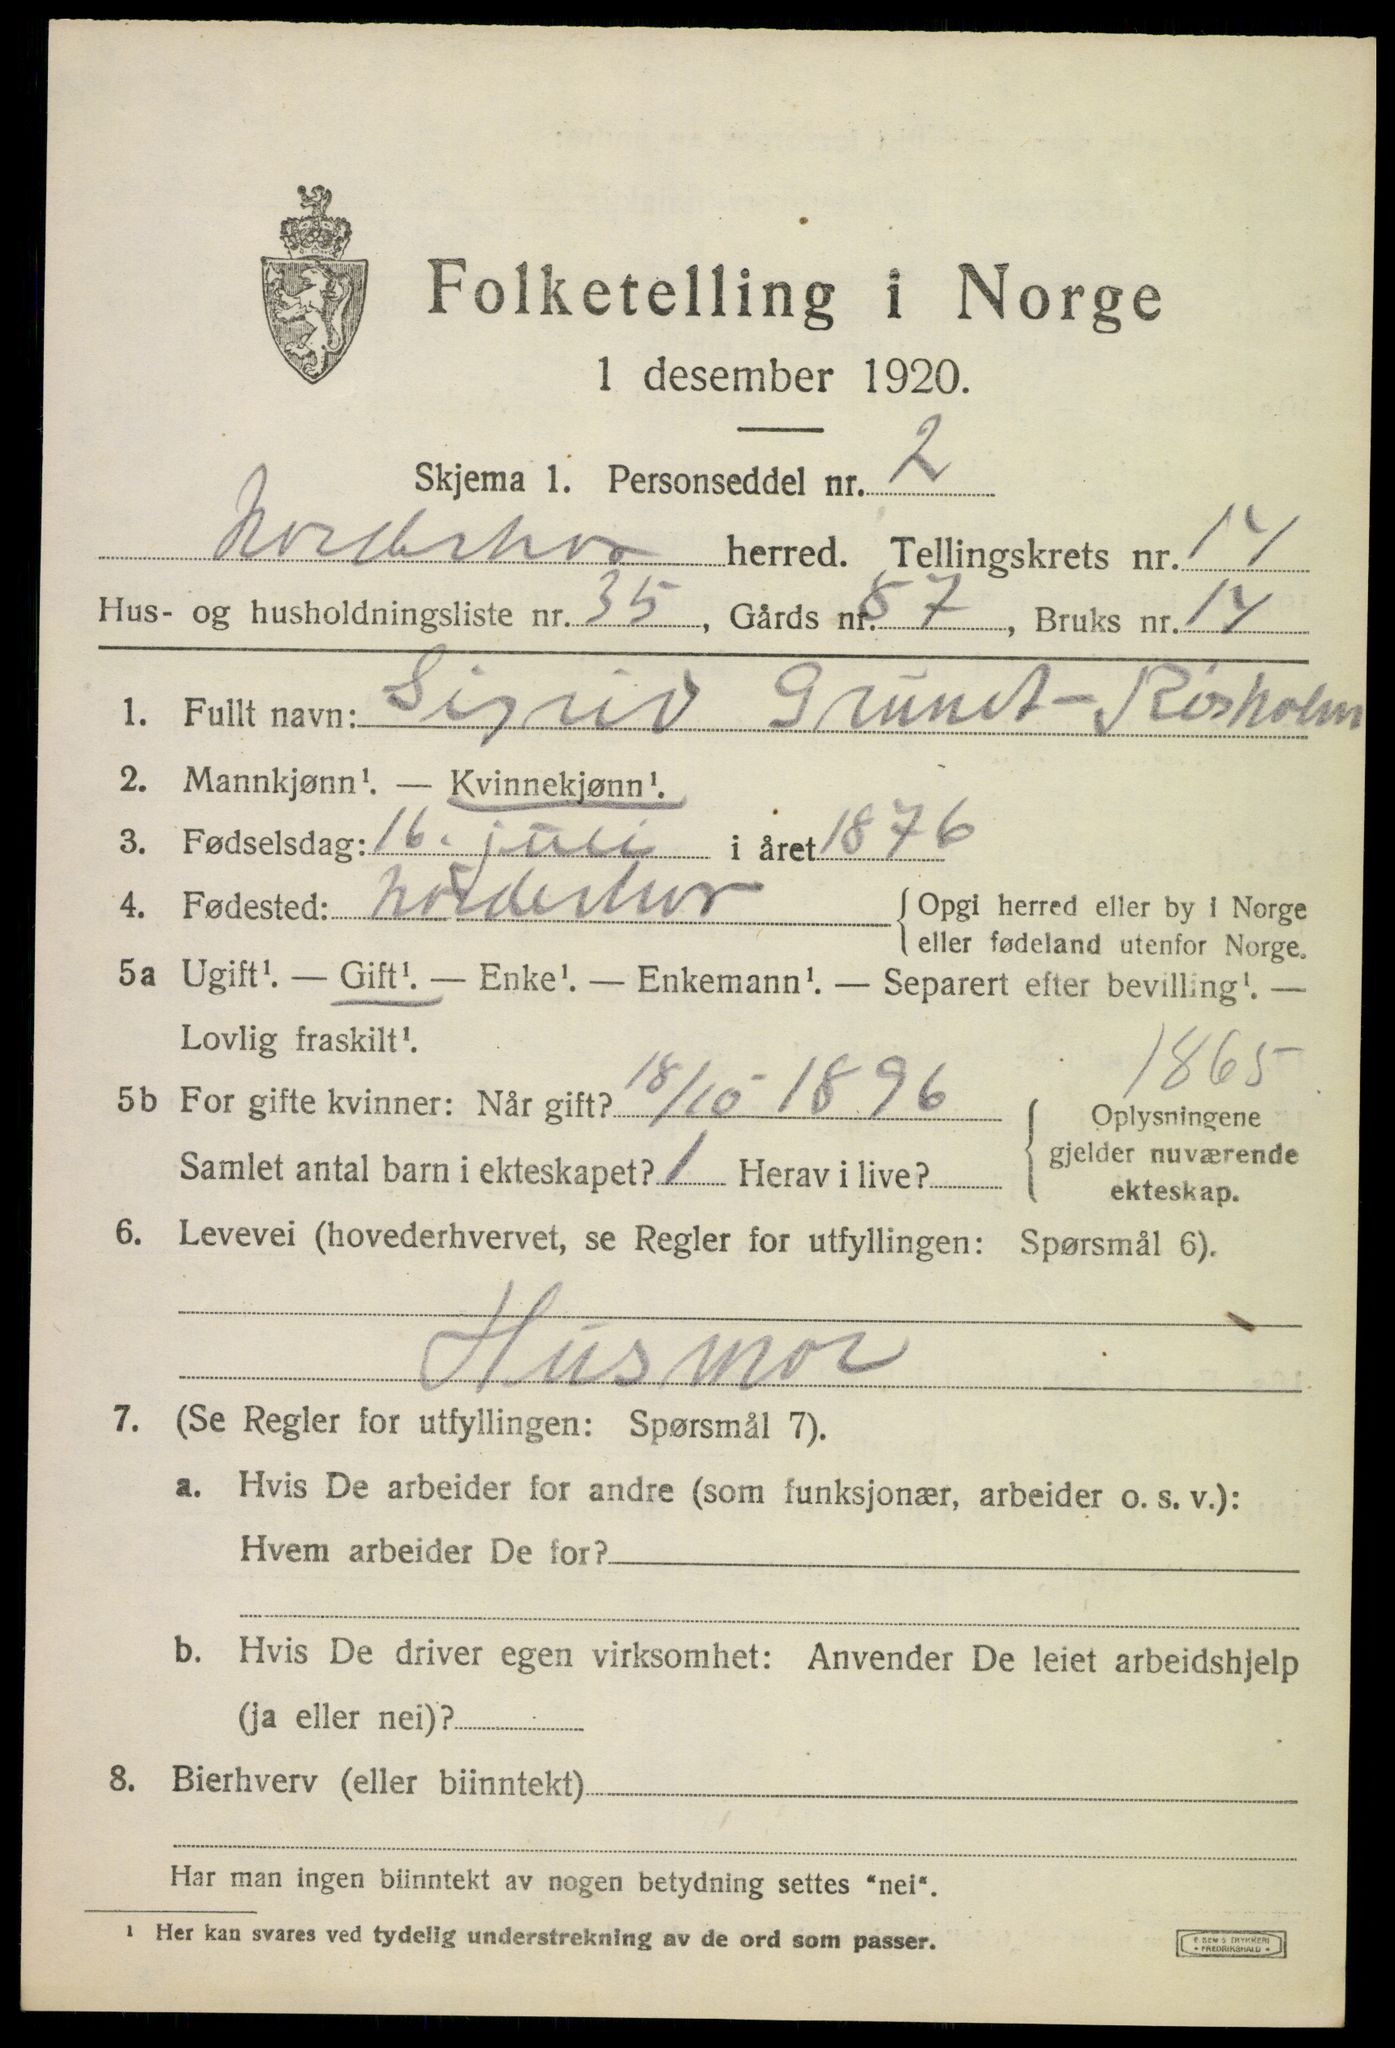 Folketelling i Norge
1 desember 1920.
Skjema 1. Personseddel nr. 2
Norderhov herred. Tellingskrets nr. 14
Hus- og husholdningsliste nr. 35, Gårds nr. 87, Bruks nr. 14
1. Fullt navn: Sigrid Grundt-Risholm
2. Mannkjønn¹. — Kvinnekjønn¹.
3. Fødselsdag: 16. juli i året 1876
4. Fødested: Norderhov { Opgi herred eller by i Norge
eller fødeland utenfor Norge.
5a Ugift¹. — Gift¹. — Enke¹. — Enkemann¹. — Separert efter bevilling¹. —
Lovlig fraskilt¹.
1865
5b For gifte kvinner: Når gift? 18/10 1896 { Oplysningene
gjelder nuværende
ekteskap.
Samlet antal barn i ekteskapet? 1 Herav i live?
6. Levevei (hovederhvervet, se Regler for utfyllingen: Spørsmål 6).
Husmor
7. (Se Regler for utfyllingen: Spørsmål 7).
a. Hvis De arbeider for andre (som funksjonær, arbeider o. s. v.):
Hvem arbeider De for?
b. Hvis De driver egen virksomhet: Anvender De leiet arbeidshjelp
(ja eller nei)?
8. Bierhverv (eller biinntekt)
Har man ingen biinntekt av nogen betydning settes "nei".
¹ Her kan svares ved tydelig understrekning av de ord som passer.
E. SEM'S TRYKKERI
• FREDRIKSHALD •